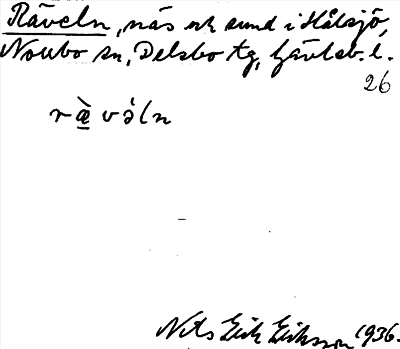 Räveln, näs och sund i Hålsjö,
Norrbo sn, Delsbo tg, Gävleb. l.
26
r æ̀ v ə́ l n
Nils Erik Eriksson 1936.